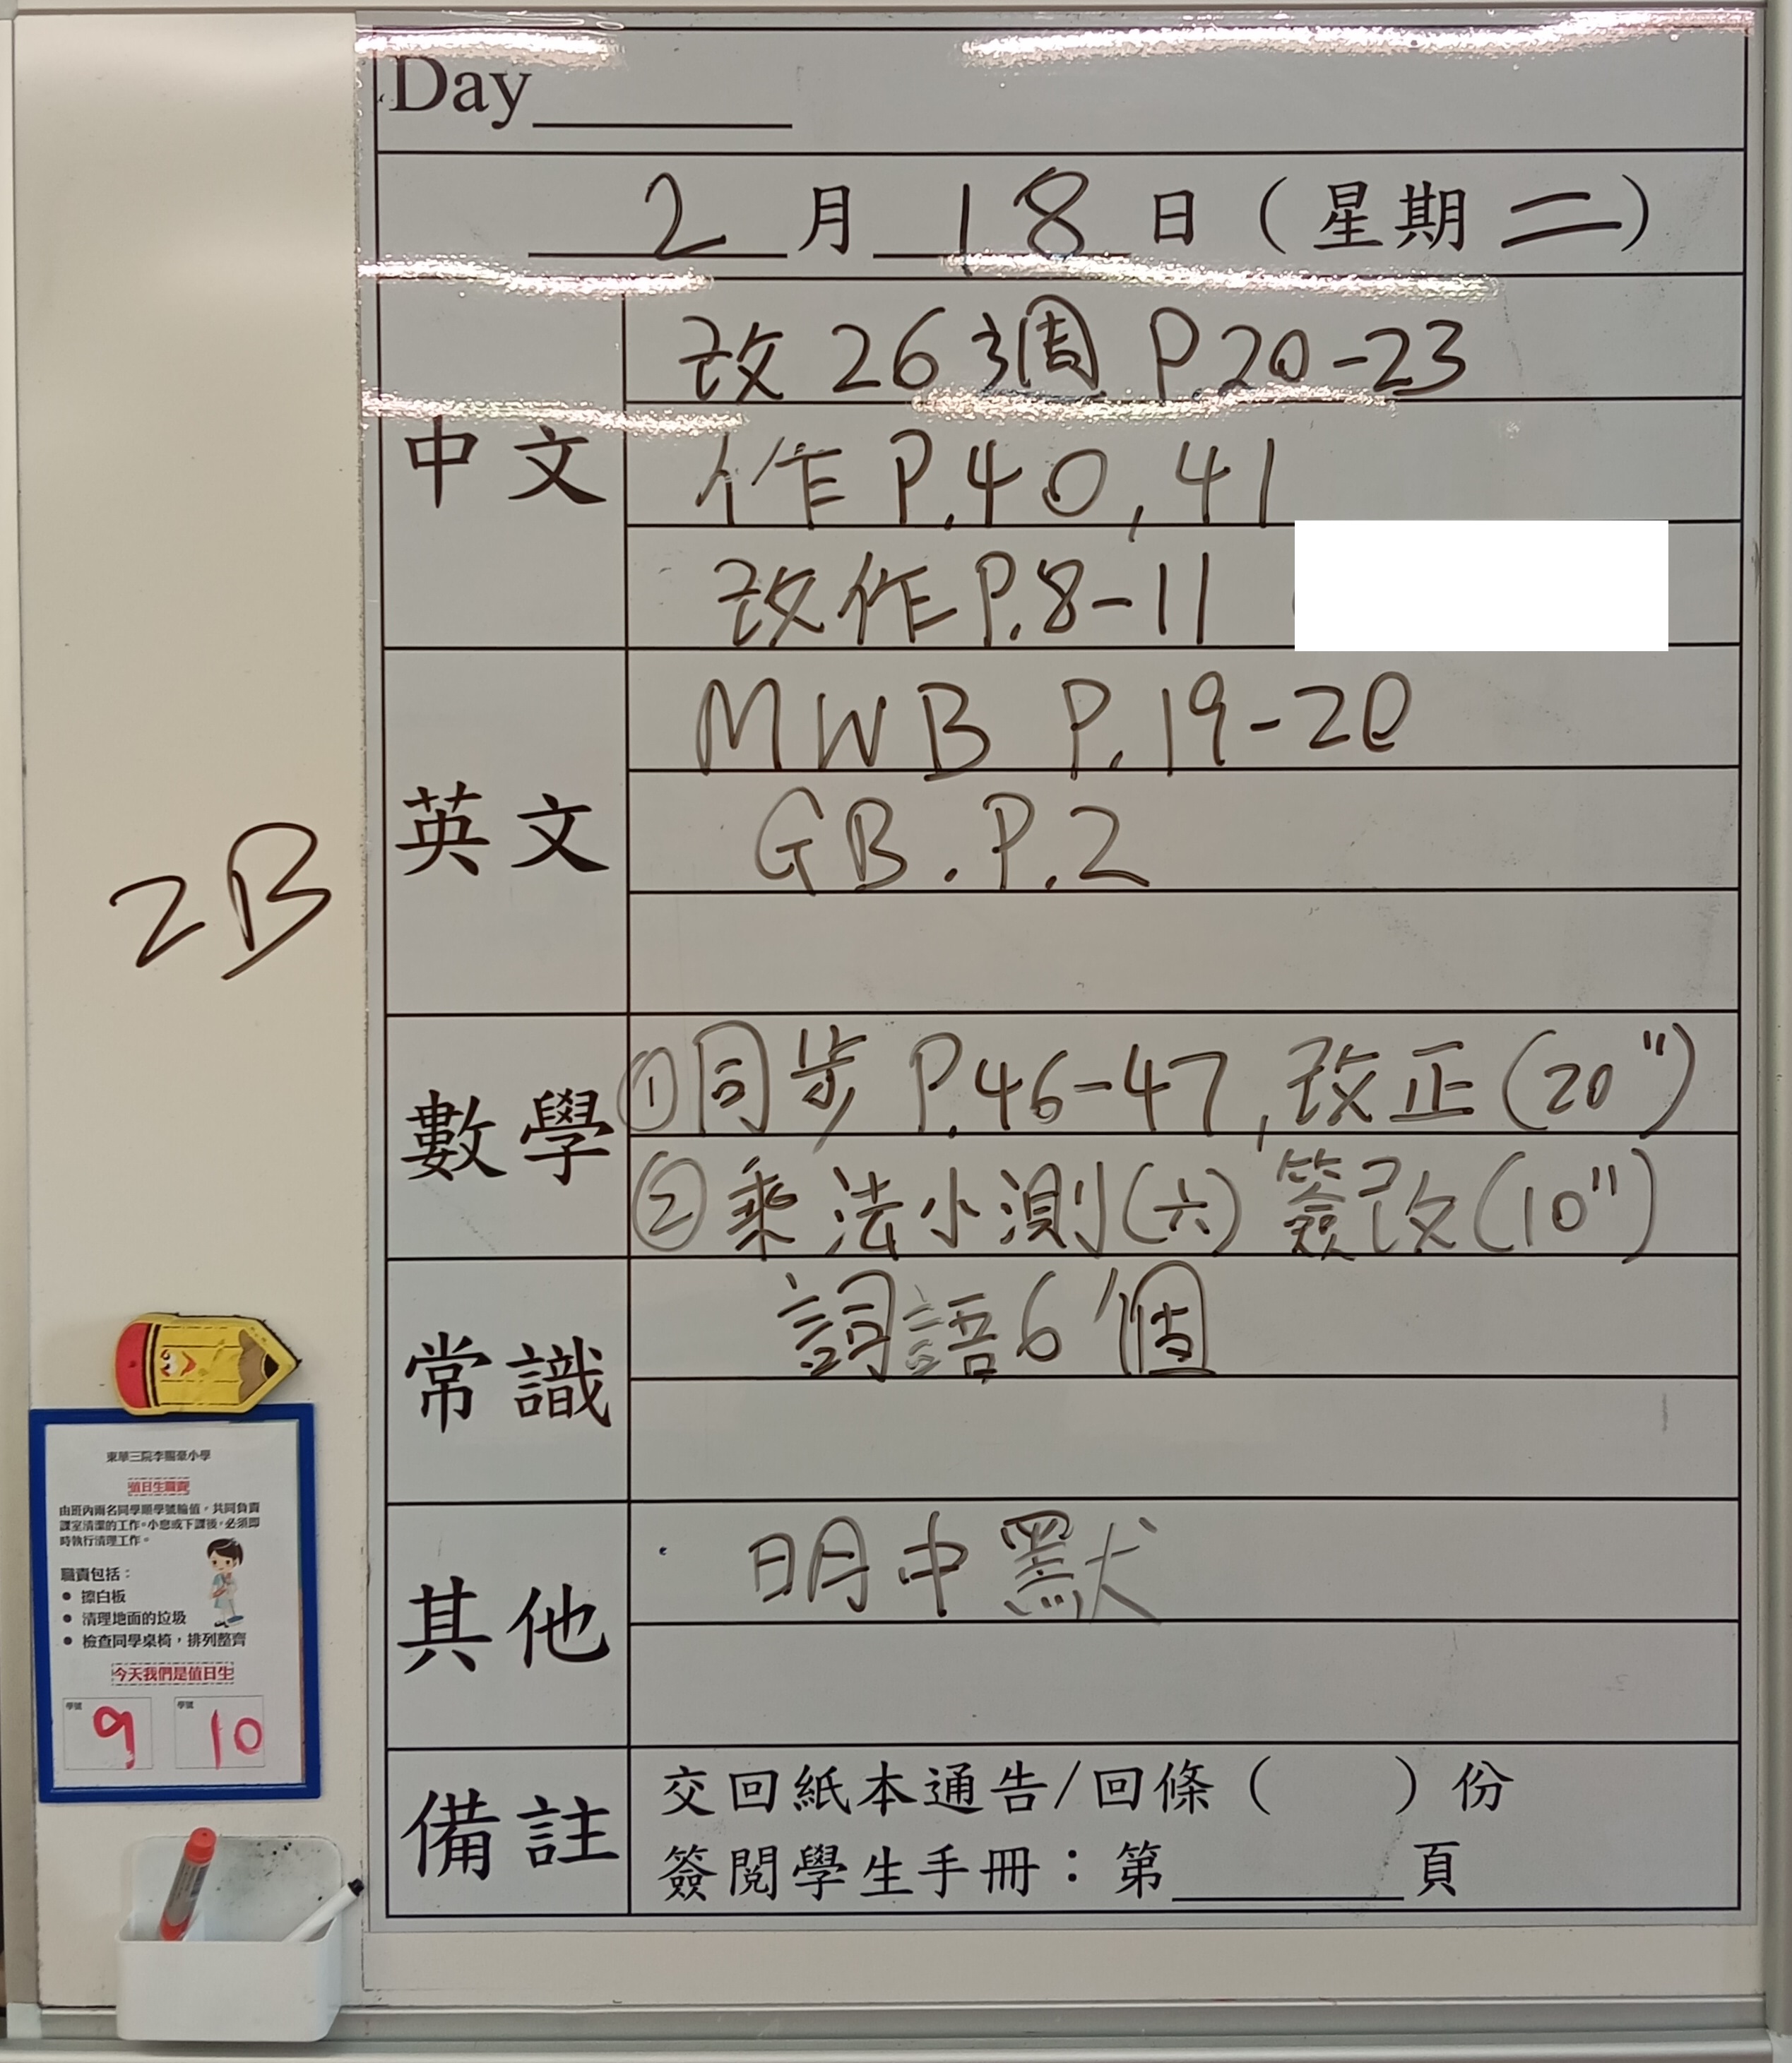 Day
2月18日（星期二）
中文
改 26週 P.20-23
作 P.40, 41
改作 P.8-11
英文
MWB P.19-20
GB. P.2
2B
數學
①同步 P.46-47, 改正(20")
②乘法小測(六) 簽改(10")
常識
詞語6個
其他
明中默
備註
交回紙本通告/回條（ ）份
簽閱學生手冊：第 頁
東華三院李賜豪小學
值日生職責
由班內兩名同學順學號輪值，共同負責
課室清潔的工作。小息或下課後，必須即
時執行清理工作。
職責包括：
● 擦白板
● 清理地面的垃圾
● 檢查同學桌椅，排列整齊
今天我們是值日生
學號 學號
9 10